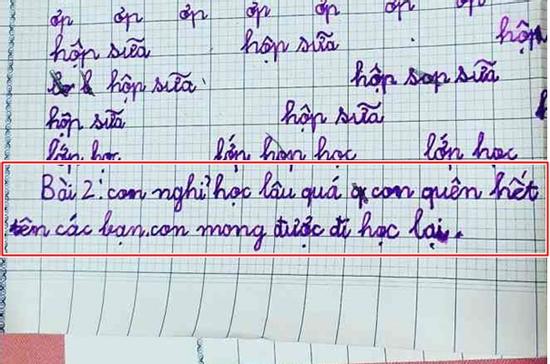 ơp ơp ơp ơp ơp ơp ơp
hộp sữa hộp sữa hộp
hộp sữa hộp sữa
hộp sữa hộp sữa
lớn học lớn hơn học lớn học
Bài 2: con nghỉ học lâu quá con quên hết
tên các bạn. con mong được đi học lại.